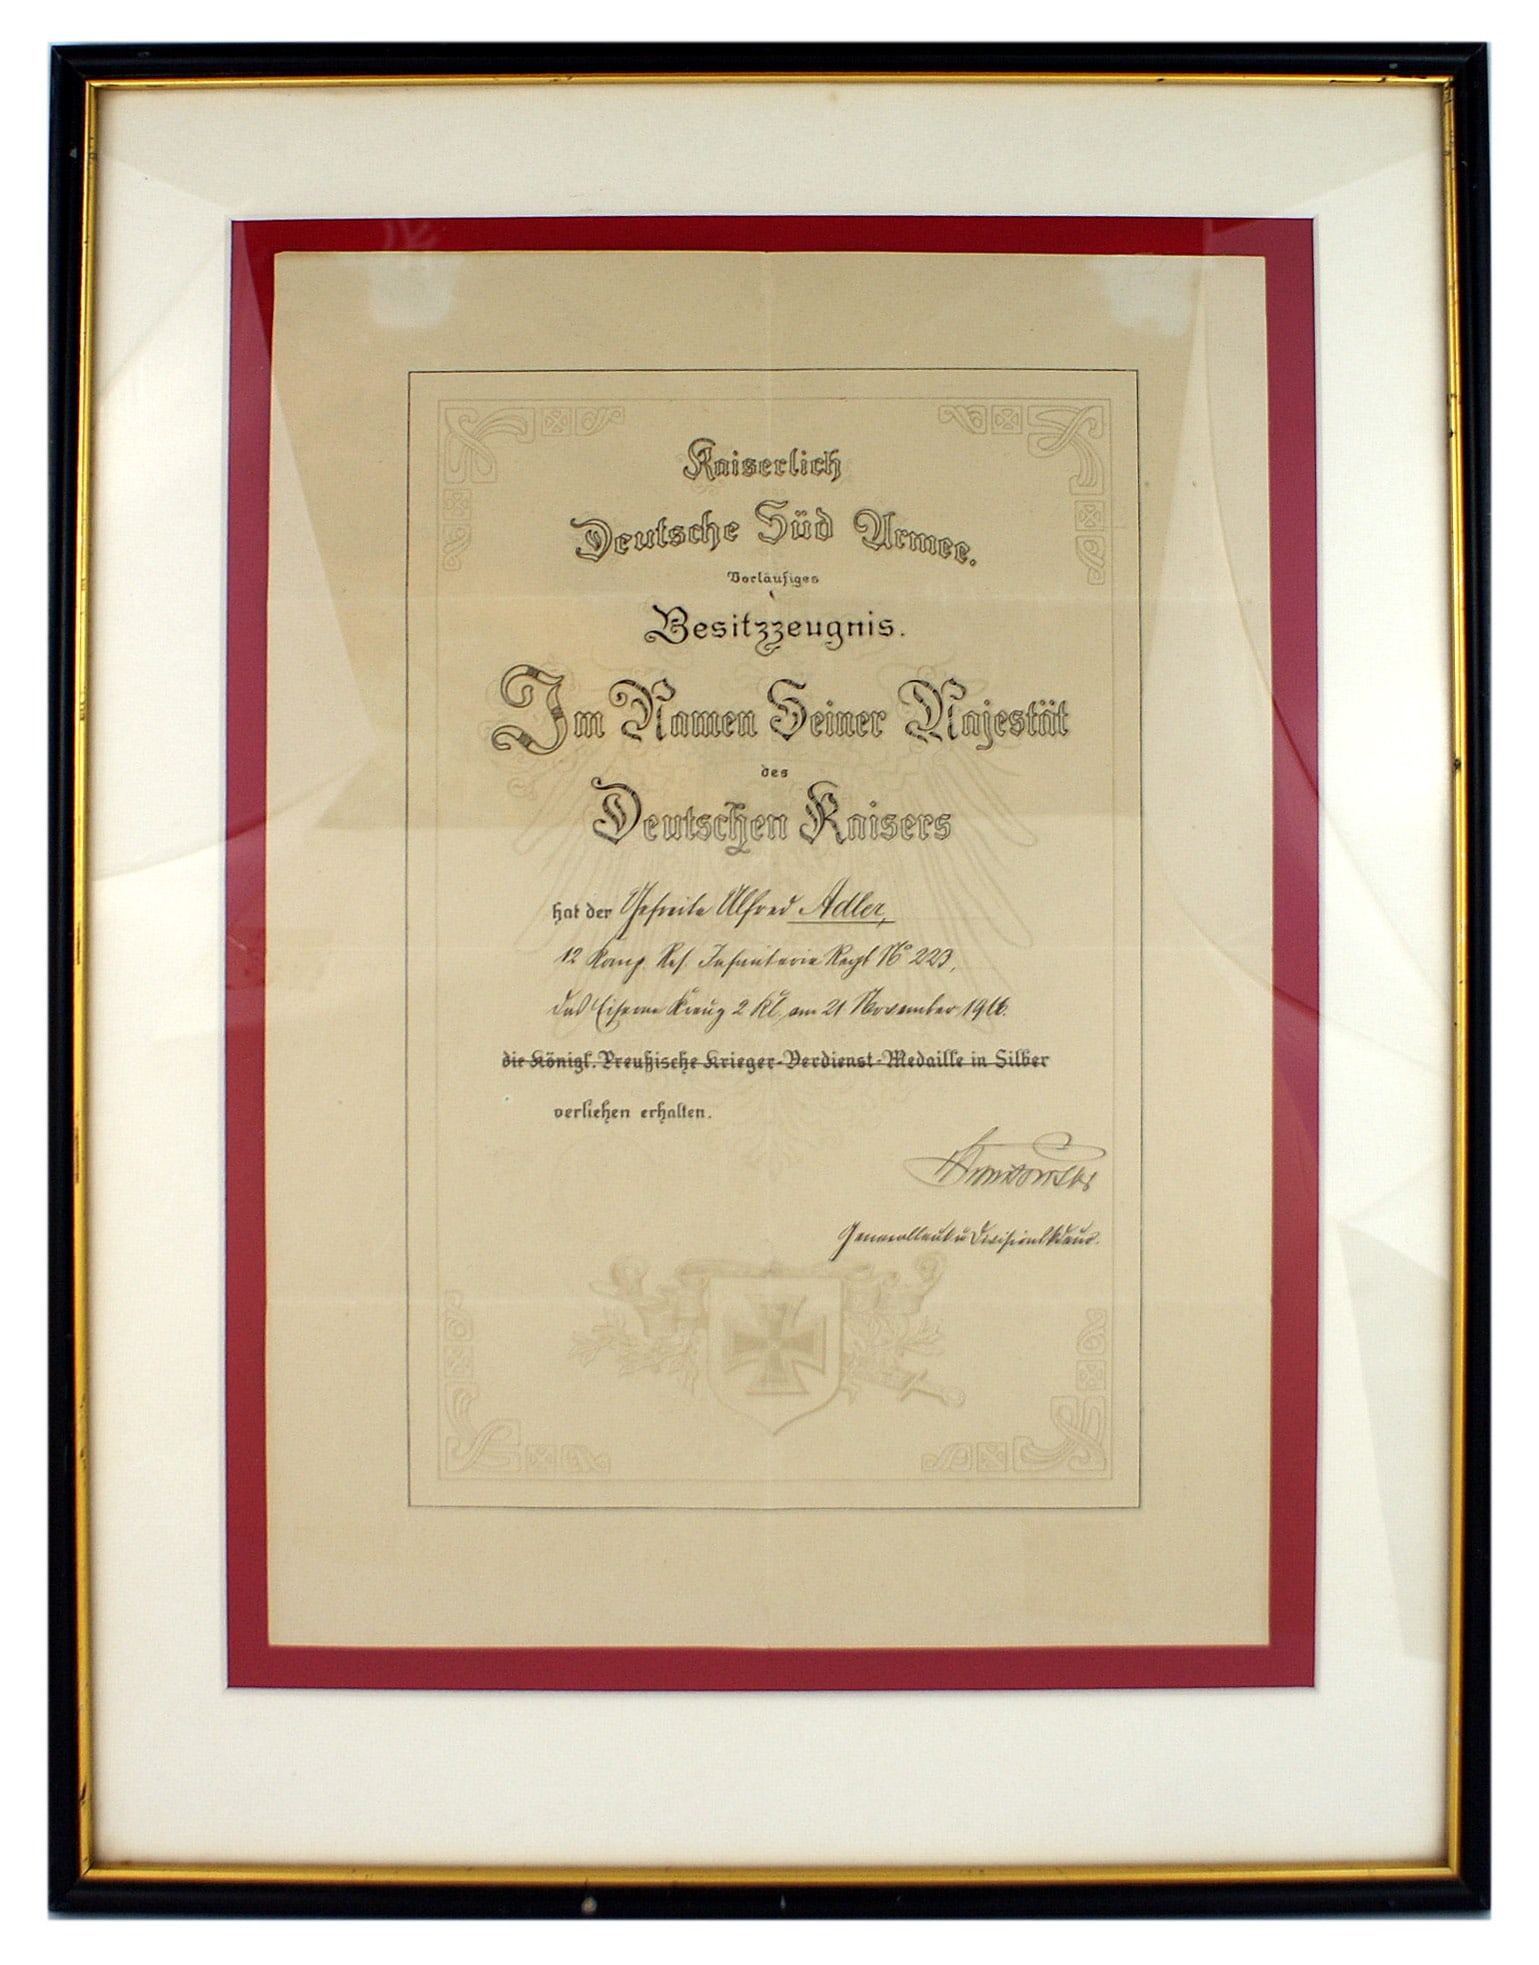 Kaiserlich
Deutsche Süd Armee.
Vorläufiges
Besitzzeugnis.
Im Namen Seiner Majestät
des
Deutschen Kaisers
hat der Gefreite Alfred Adler,
12 Komp. Res. Infanterie Regt No 223,
das Eiserne Kreuz 2 Kl. am 21 November 1916.
die Königl. Preußische Krieger-Verdienst-Medaille in Silber
verliehen erhalten.
Generalleut u Divisionskdeur.